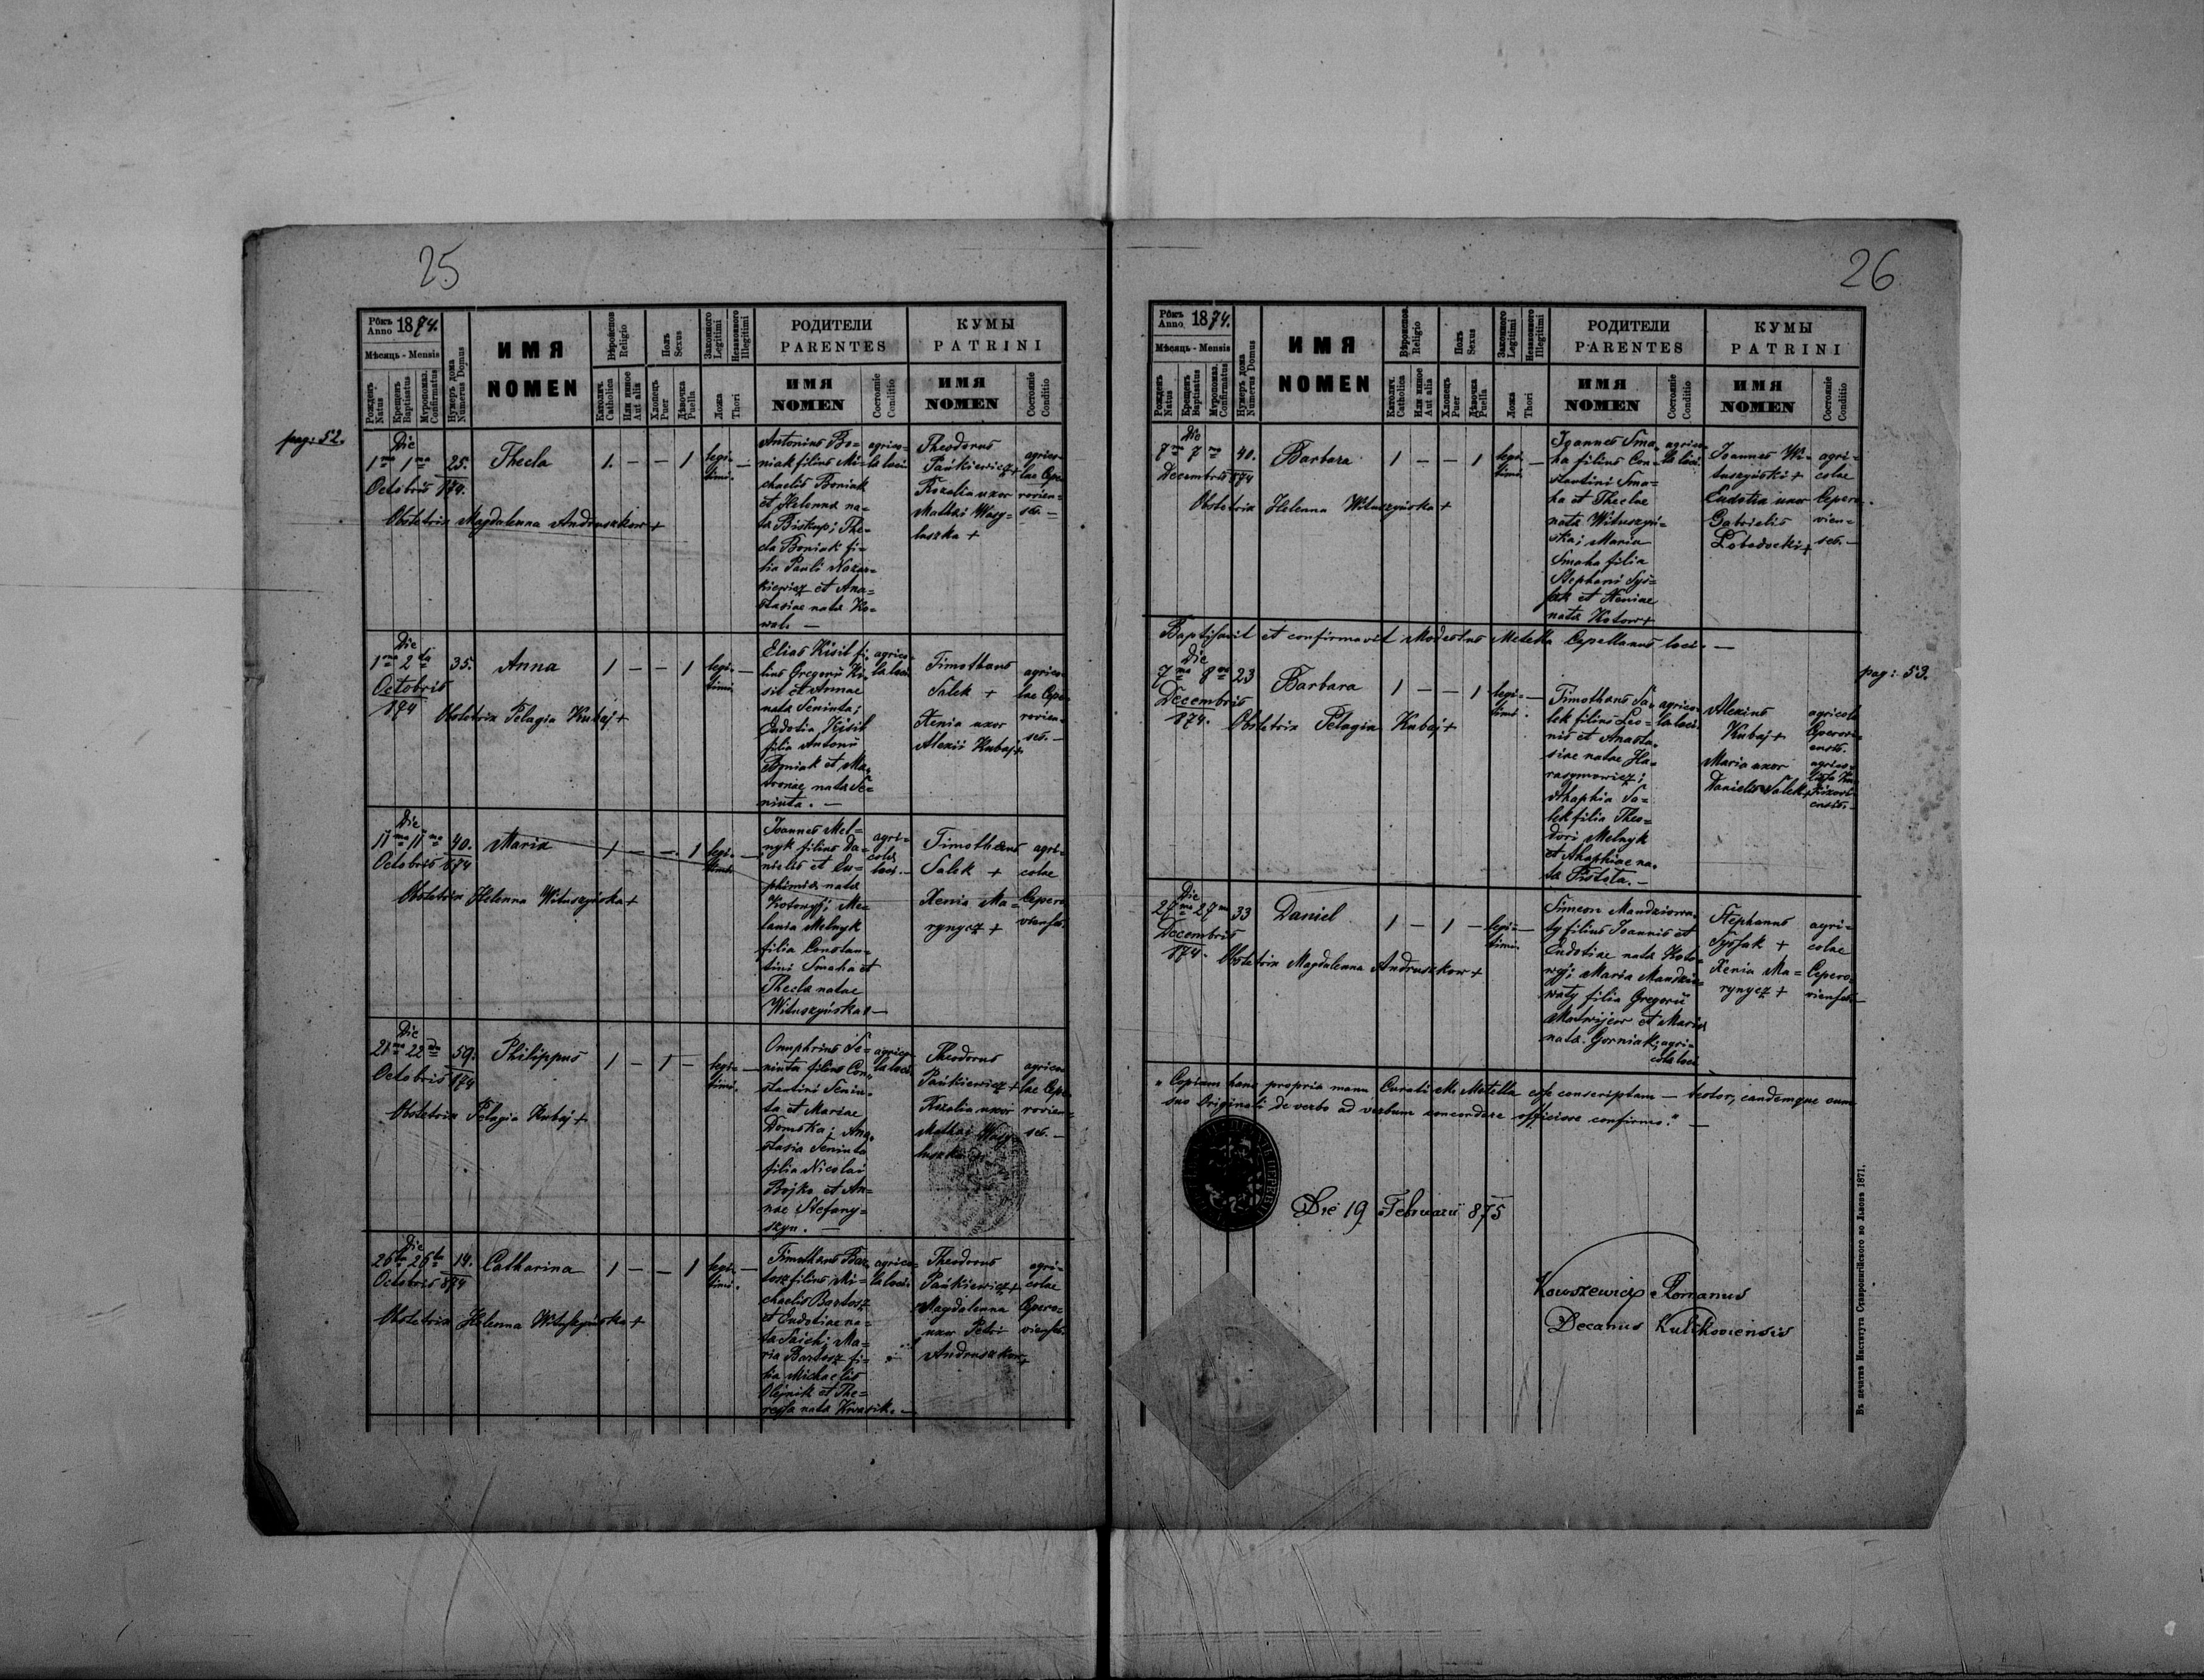 25
Рôкъ Anno 1874.
Мѣсяць - Mensis
Рожденъ Natus
Крещенъ Baptisatus
Муропомаз. Confirmatus
Нумеръ дома Numerus Domus
ИМЯ
NOMEN
Вѣроиспов. Religio
Католич. Catholica
Или иное Aut alia
Полъ Sexus
Хлопець Puer
Дѣвочка Puella
Законного Legitimi
Незаконного Illegitimi
Ложа Thori
РОДИТЕЛИ
PARENTES
ИМЯ
NOMEN
Состояніе Conditio
КУМЫ
PATRINI
ИМЯ
NOMEN
Состояніе Conditio
pag: 52.
Die
1ma 1ma
Octobris 874.
25.
Thecla
1. — — 1
legi-
timi. —
Antonius Bo-
niak filius Mi-
chaelis Boniak
et Helenna na-
ta Biskup; The-
cla Boniak fi-
lia Pauli Nazar-
kiewicz et Ana-
stasiae nata Ko-
wal. —
agrico-
la loci
Theodorus
Pańkiewicz +
Rozalia uxor
Mathei Wasy-
laszka +
agrico-
lae Cepe-
rovien-
ses. —
Obstetrix Magdalenna Andruszkow +
Die
1ma 2da
Octobris
874
35.
Anna
1 — — 1
legi-
timi. —
Elias Kisil fi-
lius Gregorii Ki-
sil et Annae
nata Seniuta;
Eudotia Kisil
filia Antonii
Boniak et Ma-
tronae nata Se-
niuta. —
agrico-
la loci
Timotheus
Salek +
Xenia uxor
Alexii Kubaj +
agrico-
lae Cepe-
rovien-
ses. —
Obstetrix Pelagia Kubaj +
Die
11ma 11ma
Octobris 874
40.
Maria
1 — — 1
legi-
timi. —
Joannes Mel-
nyk filius Da-
nielis et Eu-
phimia nata
Kotowyj; Me-
lania Melnyk
filia Constan-
tini Smaha et
Thecla natae
Wituszyńska —
agri-
cola
loci. —
Timotheus
Salek +
Xenia Ma-
rynycz +
agri-
colae
Cepero-
vienses.
Obstetrix Helenna Wituszyńska +
Die
21ma 22da
Octobris 874
59.
Philippus
1 — 1 —
legi-
timi. —
Onuphrius Se-
niuta filius Con-
stantini Seniu-
ta et Mariae
Domska; Ana-
stasia Seniuta
filia Nicolai
Bojko et An-
nae Stefany-
szyn. —
agrico-
la loci
Theodorus
Pańkiewicz +
Rozalia uxor
Mathei Wasy-
agrico-
lae Cepe-
rovien-
ses. —
Obstetrix Pelagia Kubaj +
Die
26ta 26ta
Octobris 874
14.
Catharina
1 — — 1
legi-
timi. —
Timotheus Bar-
tosz filius Mi-
chaelis Bartosz
et Eudotiae na-
ta Saich; Ma-
ria Bartosz fi-
lia Michaelis
Olejnik et The-
ressa nata Kwasik. —
agrico-
la loci
Theodorus
Pańkiewicz +
Magdalenna
uxor Petri
Andruszkow +
agri-
colae
Cepero-
vienses.
Obstetrix Helenna Wituszyńska +
26
Рôкъ Anno 1874.
Мѣсяць - Mensis
Рожденъ Natus
Крещенъ Baptisatus
Муропомаз. Confirmatus
Нумеръ дома Numerus Domus
ИМЯ
NOMEN
Вѣроиспов. Religio
Католич. Catholica
Или иное Aut alia
Полъ Sexus
Хлопець Puer
Дѣвочка Puella
Законного Legitimi
Незаконного Illegitimi
Ложа Thori
РОДИТЕЛИ
PARENTES
ИМЯ
NOMEN
Состояніе Conditio
КУМЫ
PATRINI
ИМЯ
NOMEN
Состояніе Conditio
Die
7ma 7ma
Decembris 874
40.
Barbara
1 — — 1
legi-
timi. —
Joannes Sma-
ha filius Con-
stantini Sma-
ha et Theclae
nata Wituszyń-
ska; Maria
Smaha filia
Stephani Sys-
sak et Xeniae
nata Kotow +
agrico-
la loci.
Joannes Wi-
tuszyński +
Eudotia uxor
Gabrielis
Lobodocki +
agri-
colae
Cepero-
vien-
ses. —
Obstetrix Helenna Wituszyńska +
Baptisavit et confirmavit Modestus Metella Capellanus loci. —
pag: 53.
Die
7ma 8va
Decembris
874.
23
Barbara
1 — — 1
legi-
timi. —
Timotheus Sa-
lek filius Leo-
nis et Anasta-
siae natae Ha-
rasymowicz;
Ahaphia Sa-
lek filia Theo-
dori Melnyk
et Ahaphiae na-
ta Pistota. —
agrico-
la loci.
Alexius
Kubaj +
Maria uxor
Danielis Salek +
agricola
Ceperovi-
ensis.
agrico-
ensis. —
Obstetrix Pelagia Kubaj +
Die
27ma 27ma
Decembris
874.
33
Daniel
1 — 1 —
legi-
timi. —
Simeon Mandziowa-
ty filius Joannis et
Eudotiae nata Koto-
wyj; Maria Mandzio-
waty filia Gregorii
Matwijcow et Maria
nata Gorniak; agri-
cola loci
Stephanus
Syssak +
Xenia Ma-
rynycz +
agri-
colae
Cepero-
vienses —
Obstetrix Magdalenna Andruszkow +
„Copiam hanc propria manu Curati M. Metella esse conscriptam — testor, eandemque cum
suo Originali de verbo ad verbum concordare officiose confirmo." —
Die 19 Februarii 875
Kowszewicz Romanus
Decanus Kulikoviensis
Въ печатн Института Ставропигійского во Львовѣ 1871.